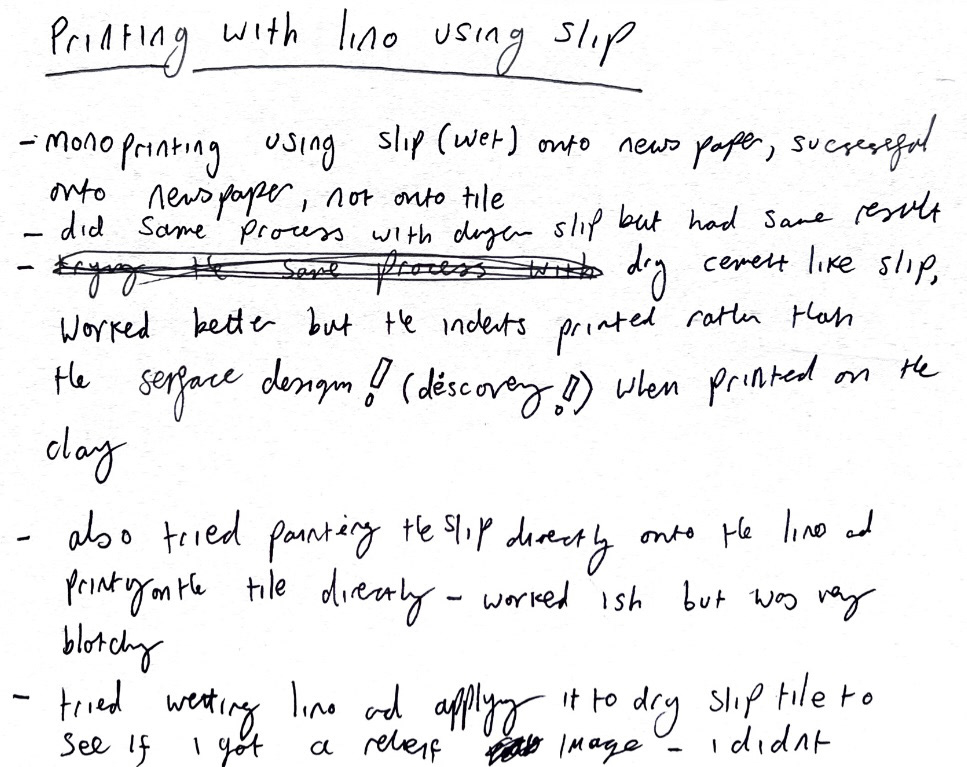 Printing with lino using slip
- mono printing using slip (wet) onto news paper, sucsessful
onto newspaper, not onto tile
- did same process with dryer slip but had same result
- trying the same process with dry cement like slip,
worked better but the indents printed rather than
the serface design! (discovery!!) when printed on the
clay
- also tried painting the slip directly onto the lino ad
printing on the tile directly - worked ish but was very
blotchy
- tried wetting lino ad applying it to dry slip tile to
see if I got a releif image - i didnt